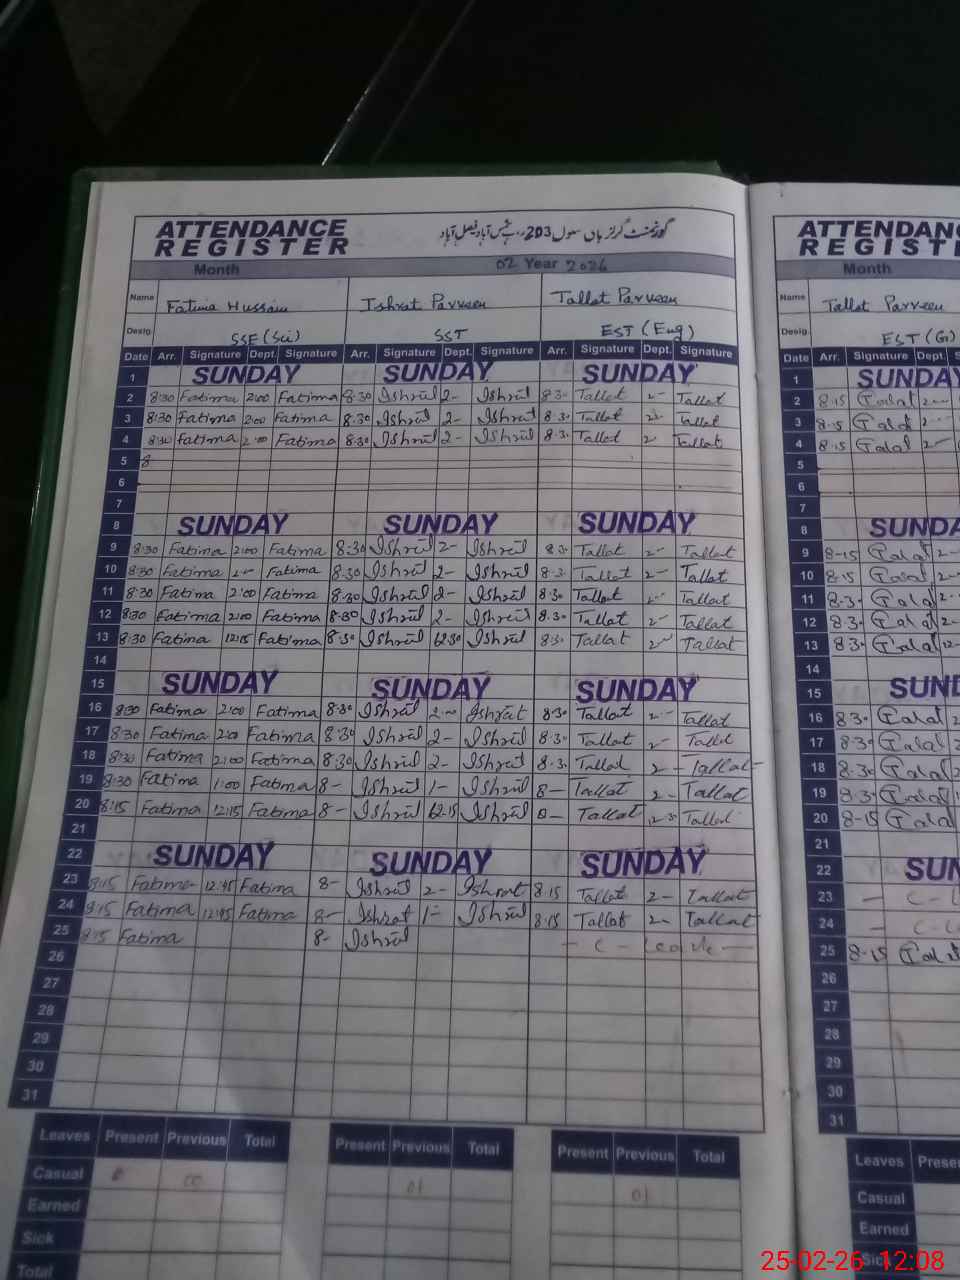 ATTENDANCE REGISTER گورنمنٹ گرلز ہائی سکول 203
Month 02 Year 2026
Name Fatima Hussain Ishrat Parveen Tallat Parveen
Desig. SSE (Sci) SST EST (Eng)
Date Arr. Signature Dept. Signature Arr. Signature Dept. Signature Arr. Signature Dept. Signature
1 SUNDAY SUNDAY SUNDAY
2 8:30 Fatima 2:00 Fatima 8:30 Ishrat 2- Ishrat 8:3. Tallat 2- Tallat
3 8:30 Fatima 2:00 Fatima 8:30 Ishrat 2- Ishrat 8:3. Tallat 2- Tallat
4 8:30 fatima 2:00 Fatima 8:30 Ishrat 2- Ishrat 8:3. Tallat 2- Tallat
5 8
6
7
8 SUNDAY SUNDAY SUNDAY
9 8:30 Fatima 2:00 Fatima 8:30 Ishrat 2- Ishrat 8:3. Tallat 2- Tallat
10 8:30 Fatima 2- Fatima 8:30 Ishrat 2- Ishrat 8:3. Tallat 2- Tallat
11 8:30 Fatima 2:00 Fatima 8:30 Ishrat 2- Ishrat 8:30 Tallat 2- Tallat
12 8:30 Fatima 2:00 Fatima 8:30 Ishrat 2- Ishrat 8:3. Tallat 2- Tallat
13 8:30 Fatima 12:15 Fatima 8:30 Ishrat 12:30 Ishrat 8:3. Tallat 2- Tallat
14
15 SUNDAY SUNDAY SUNDAY
16 8:30 Fatima 2:00 Fatima 8:30 Ishrat 2:00 Ishrat 8:3. Tallat 2- Tallat
17 8:30 Fatima 2:00 Fatima 8:30 Ishrat 2- Ishrat 8:3. Tallat 2- Tallat
18 8:30 Fatima 2:00 Fatima 8:30 Ishrat 2- Ishrat 8:3. Tallat 2- Tallat
19 8:30 Fatima 1:00 Fatima 8- Ishrat 1- Ishrat 8- Tallat 2- Tallat
20 8:15 Fatima 12:15 Fatima 8- Ishrat 12:15 Ishrat 8- Tallat 12:3. Tallat
21
22 SUNDAY SUNDAY SUNDAY
23 8:15 Fatima 12:45 Fatima 8- Ishrat 2- Ishrat 8:15 Tallat 2- Tallat
24 8:15 Fatima 12:45 Fatima 8- Ishrat 1- Ishrat 8:15 Tallat 2- Tallat
25 8:15 Fatima 8- Ishrat - C - Leave -
26
27
28
29
30
31
Leaves Present Previous Total Present Previous Total Present Previous Total
Casual 0 00 01 01
Earned
Sick
Total
ATTENDANC
REGISTE
Month
Name Tallat Parveen
Desig. EST (G)
Date Arr. Signature Dept.
1 SUNDAY
2 8-15 2-
3 8-15 2-
4 8-15 2-
5
6
7
8 SUNDA
9 8-15 2-
10 8-15 2-
11 8-3. 2-
12 8-3. 2-
13 8-3. 12-
14
15 SUND
16 8-3.
17 8-3.
18 8-3.
19 8-3.
20 8-15
21
22 SUN
23 - C-L
24 - C-L
25 8-15
26
27
28
29
30
31
Leaves Prese
Casual
Earned
Sick
25-02-26 12:08